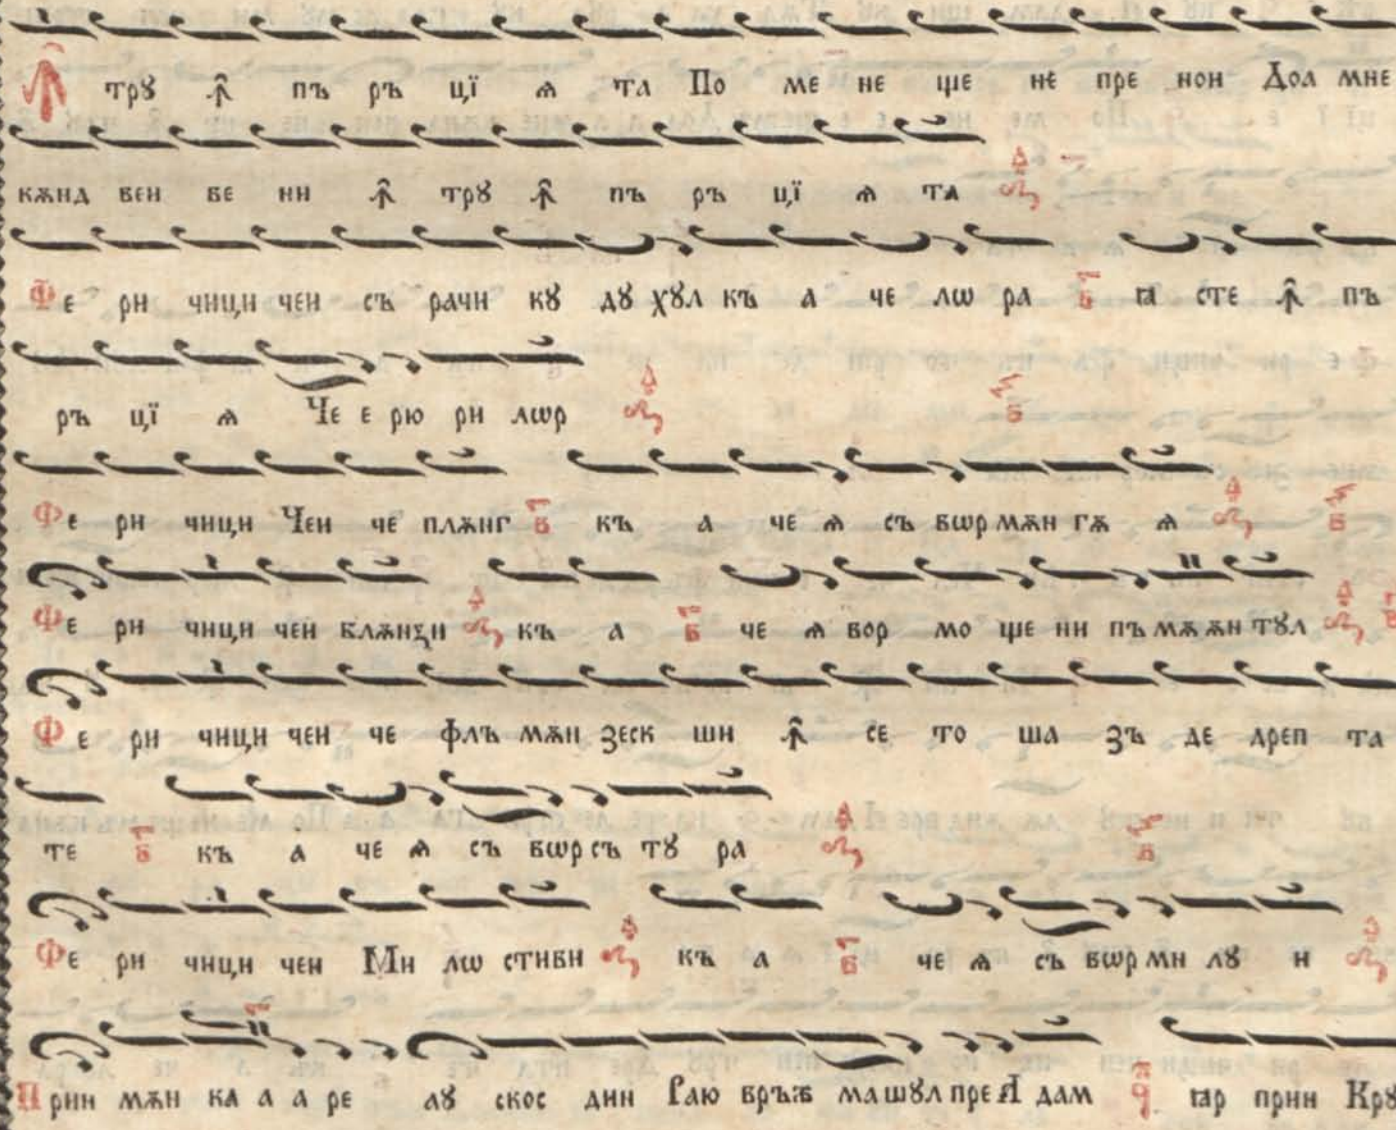 Ꙟ трꙋ ꙟ пъ ръ цї ѧ та По ме не ще не пре нои Доа мне
кѫнд веи ве ни ꙟ трꙋ ꙟ пъ ръ цї ѧ та
Фе ри чици чеи съ рачи кꙋ дꙋ хꙋл къ а че лѡ ра ꙗ сте ꙟ пъ
ръ цї ѧ Че е рю ри лѡр
Фе ри чици Чеи че плѫнг къ а че ѧ съ вѡр мѫн гѫ ѧ
Фе ри чици чеи блѫнзи къ а че ѧ вор мо ще ни пъ мѫ ѫн тꙋл
Фе ри чици чеи че флъ мѫн зеск ши ꙟ се то ша зъ де дреп та
те къ а че ѧ съ вѡр съ тꙋ ра
Фе ри чици чеи Ми лѡ стиви къ а че ѧ съ вѡр ми лꙋ и
Прин мѫн ка а а ре лꙋ скос дин Раю връж ма шꙋл пре А дам ꙗр прин Крꙋ